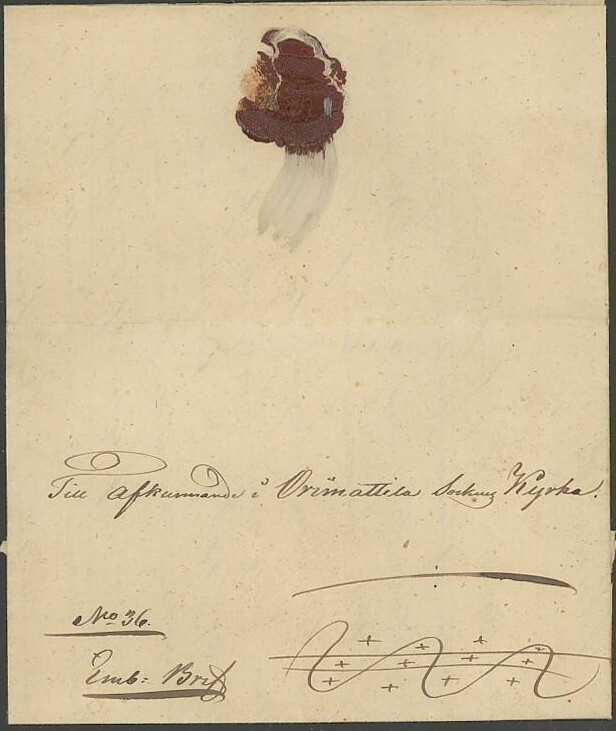 Till Afkunnande i Orimattila Sockens Kyrka.
No 36.
Emb: Bref